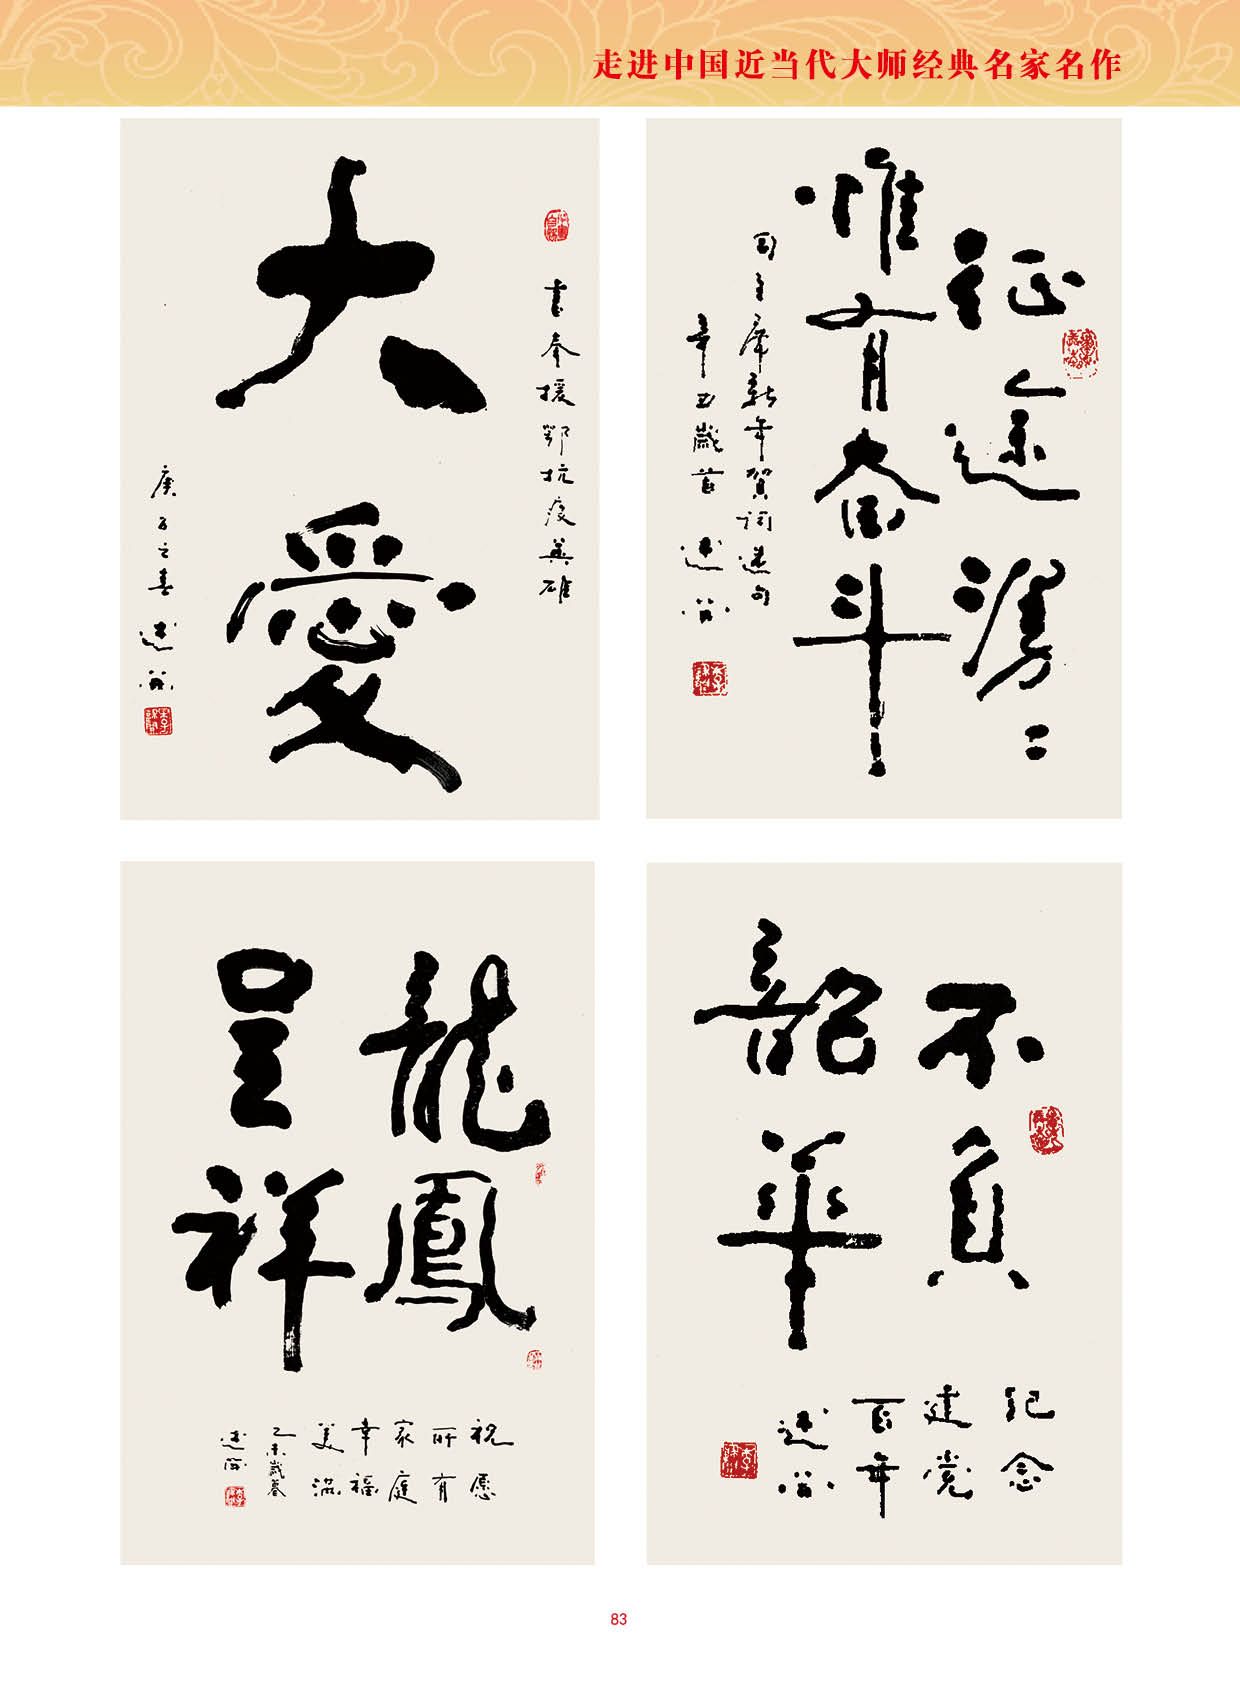 走进中国近当代大师经典名家名作
書奉援鄂抗疫英雄
大愛
庚子之春
征途漫〻
惟有奋斗
习主席新年賀词选句
辛丑歲首
龍鳳
呈祥
祝愿
所有
家庭
幸福
美满
乙未歲暮
不負
韶華
纪念
建党
百年
83